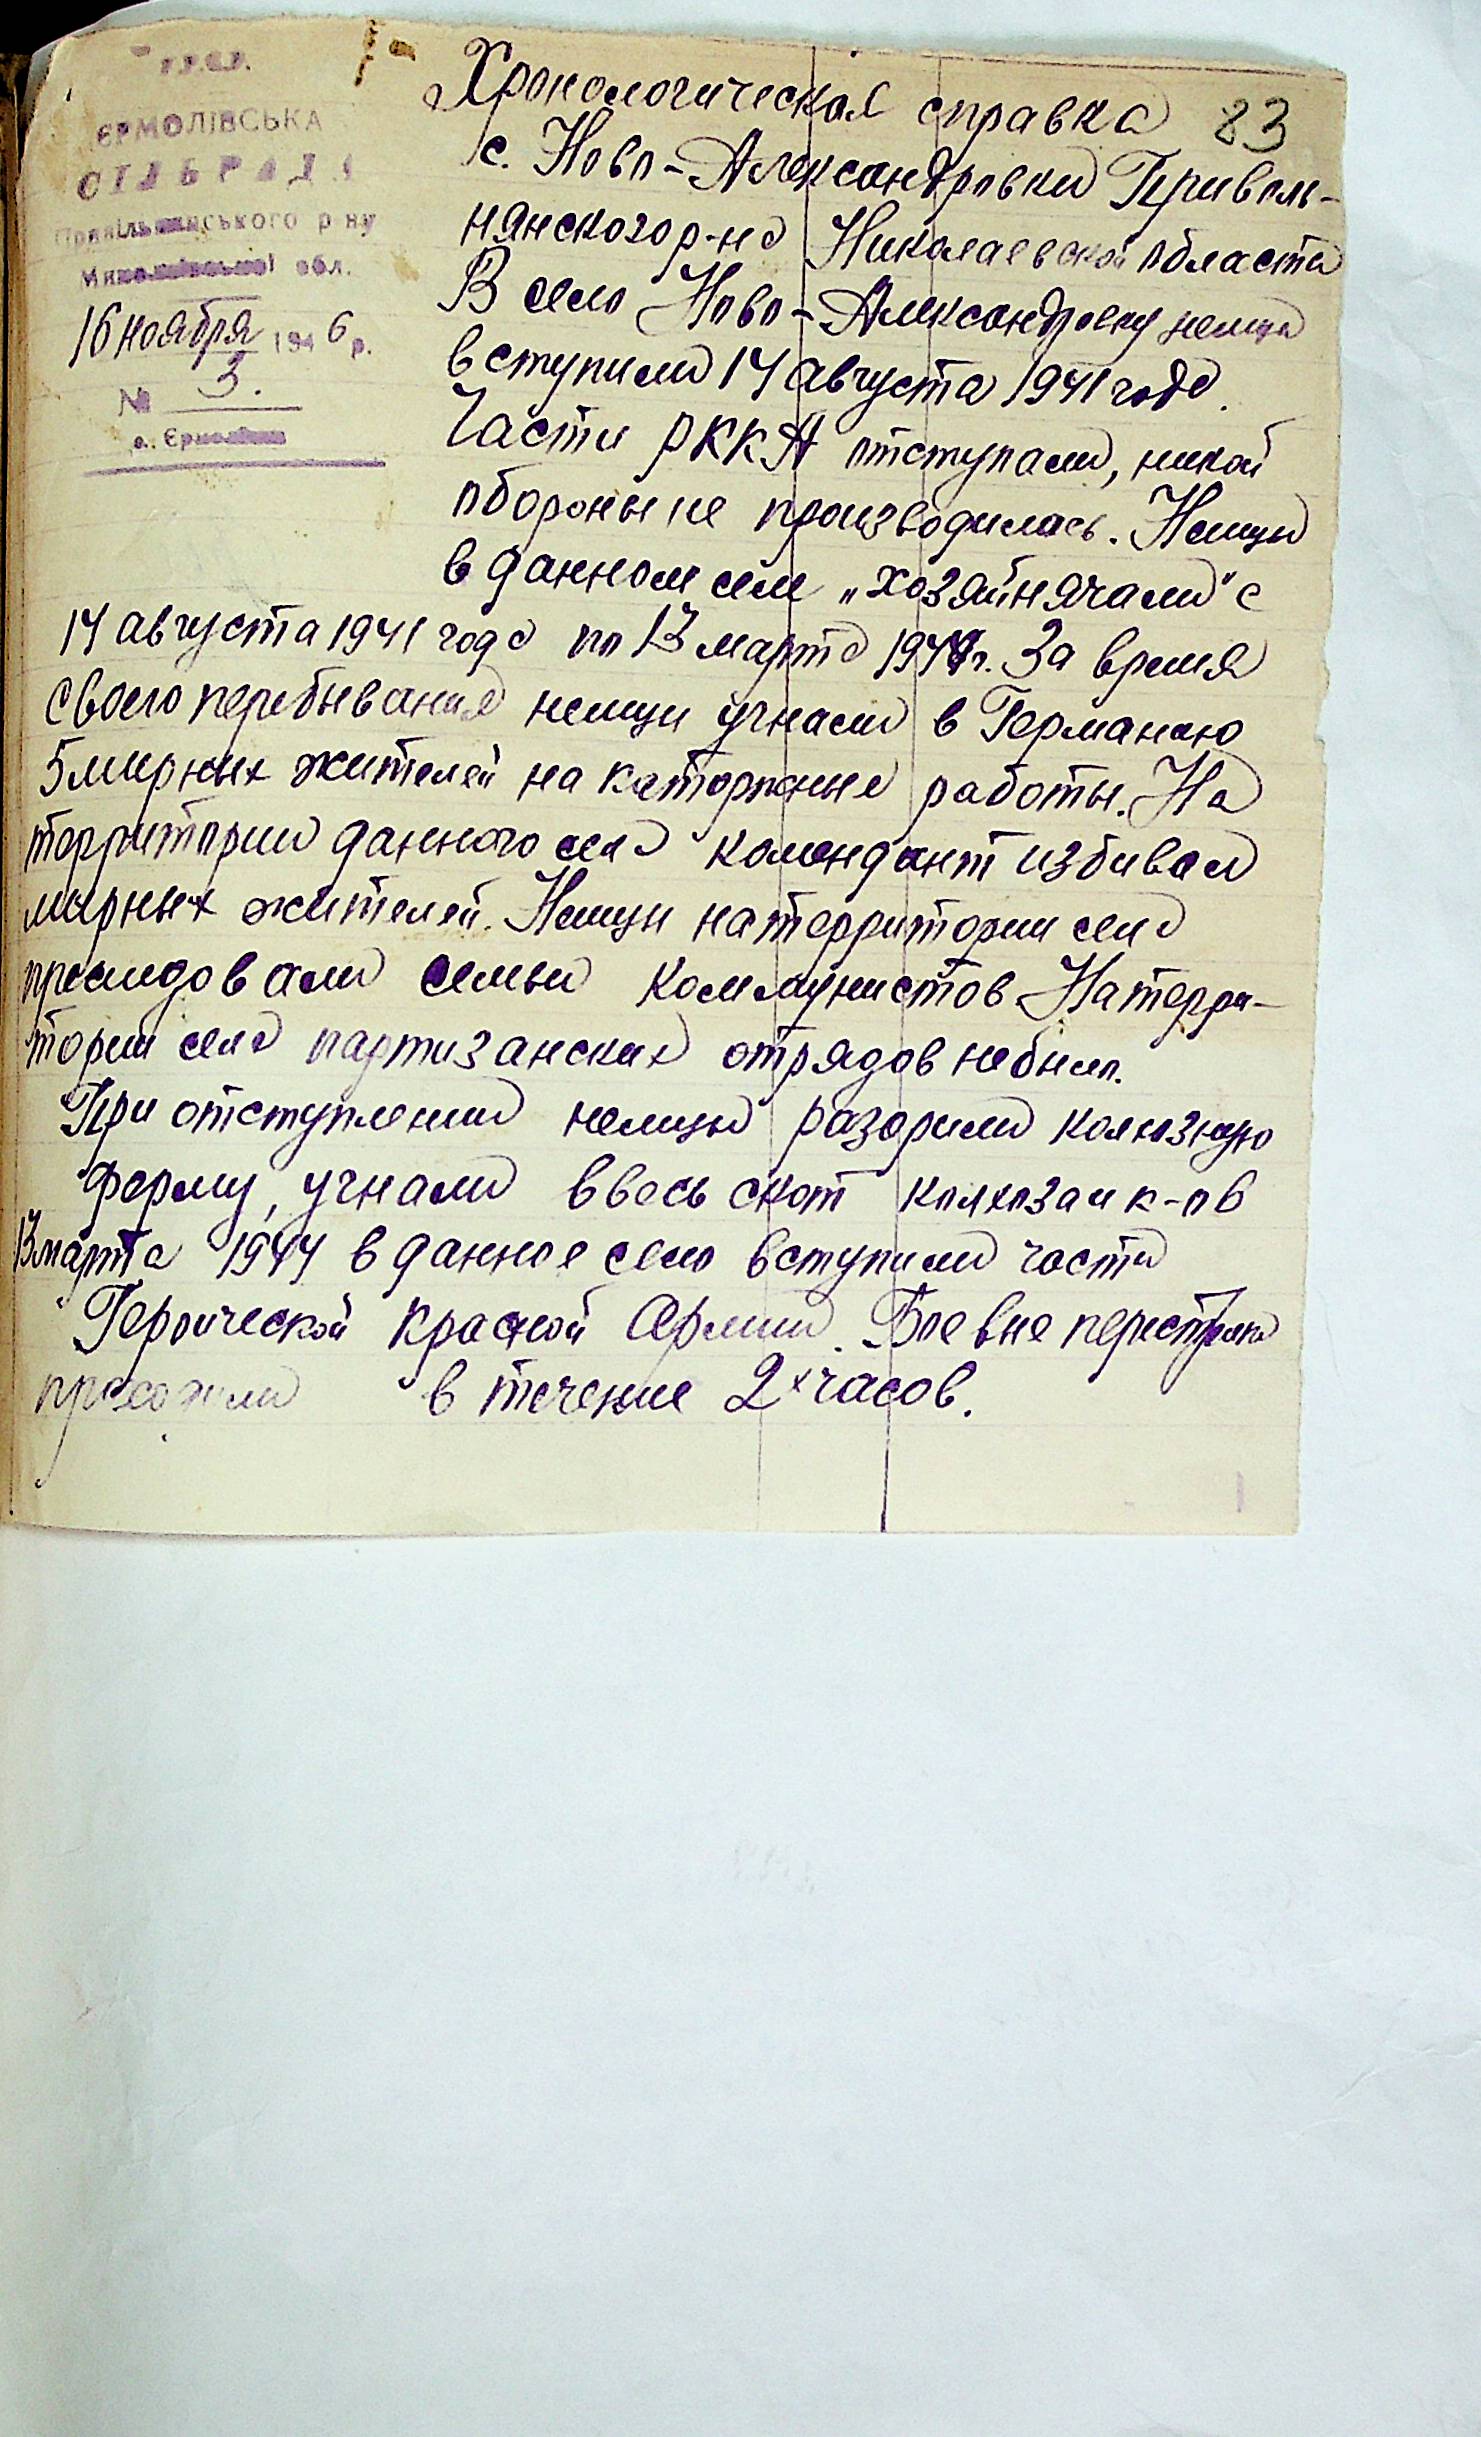 У.Р.С.Р.
ЄРМОЛІВСЬКА
СІЛЬРАДА
Привільнянського р ну
Миколаївської обл.
16 ноября 1946 р.
№ 3.
с. Єрмолівка
83
Хронологическая справка
с. Ново-Александровки Приволь-
нянского р-на Николаевской области
В село Ново-Александровку немци
вступили 14 августа 1941 года.
Части РККА отступали, никой
обороны не производилась. Немцы
в данном селе „хозяйнячали" с
14 августа 1941 года по 13 марта 1944 г. За время
своего перебывания немци угнали в Германию
5 мирных жителей на каторжные работы. На
территории данного села комендант избивал
мирных жителей. Немцы на территории села
преследовали семьи коммунистов На терри-
тории села партизанских отрядов не было.
При отступлении немцы разорили колхозную
ферму, угнали ввесь скот колхоза и к-ов
13 марта 1944 в данное село вступили части
Героической красной Армии. Боевые перестрелки
проходили в течение 2х часов.